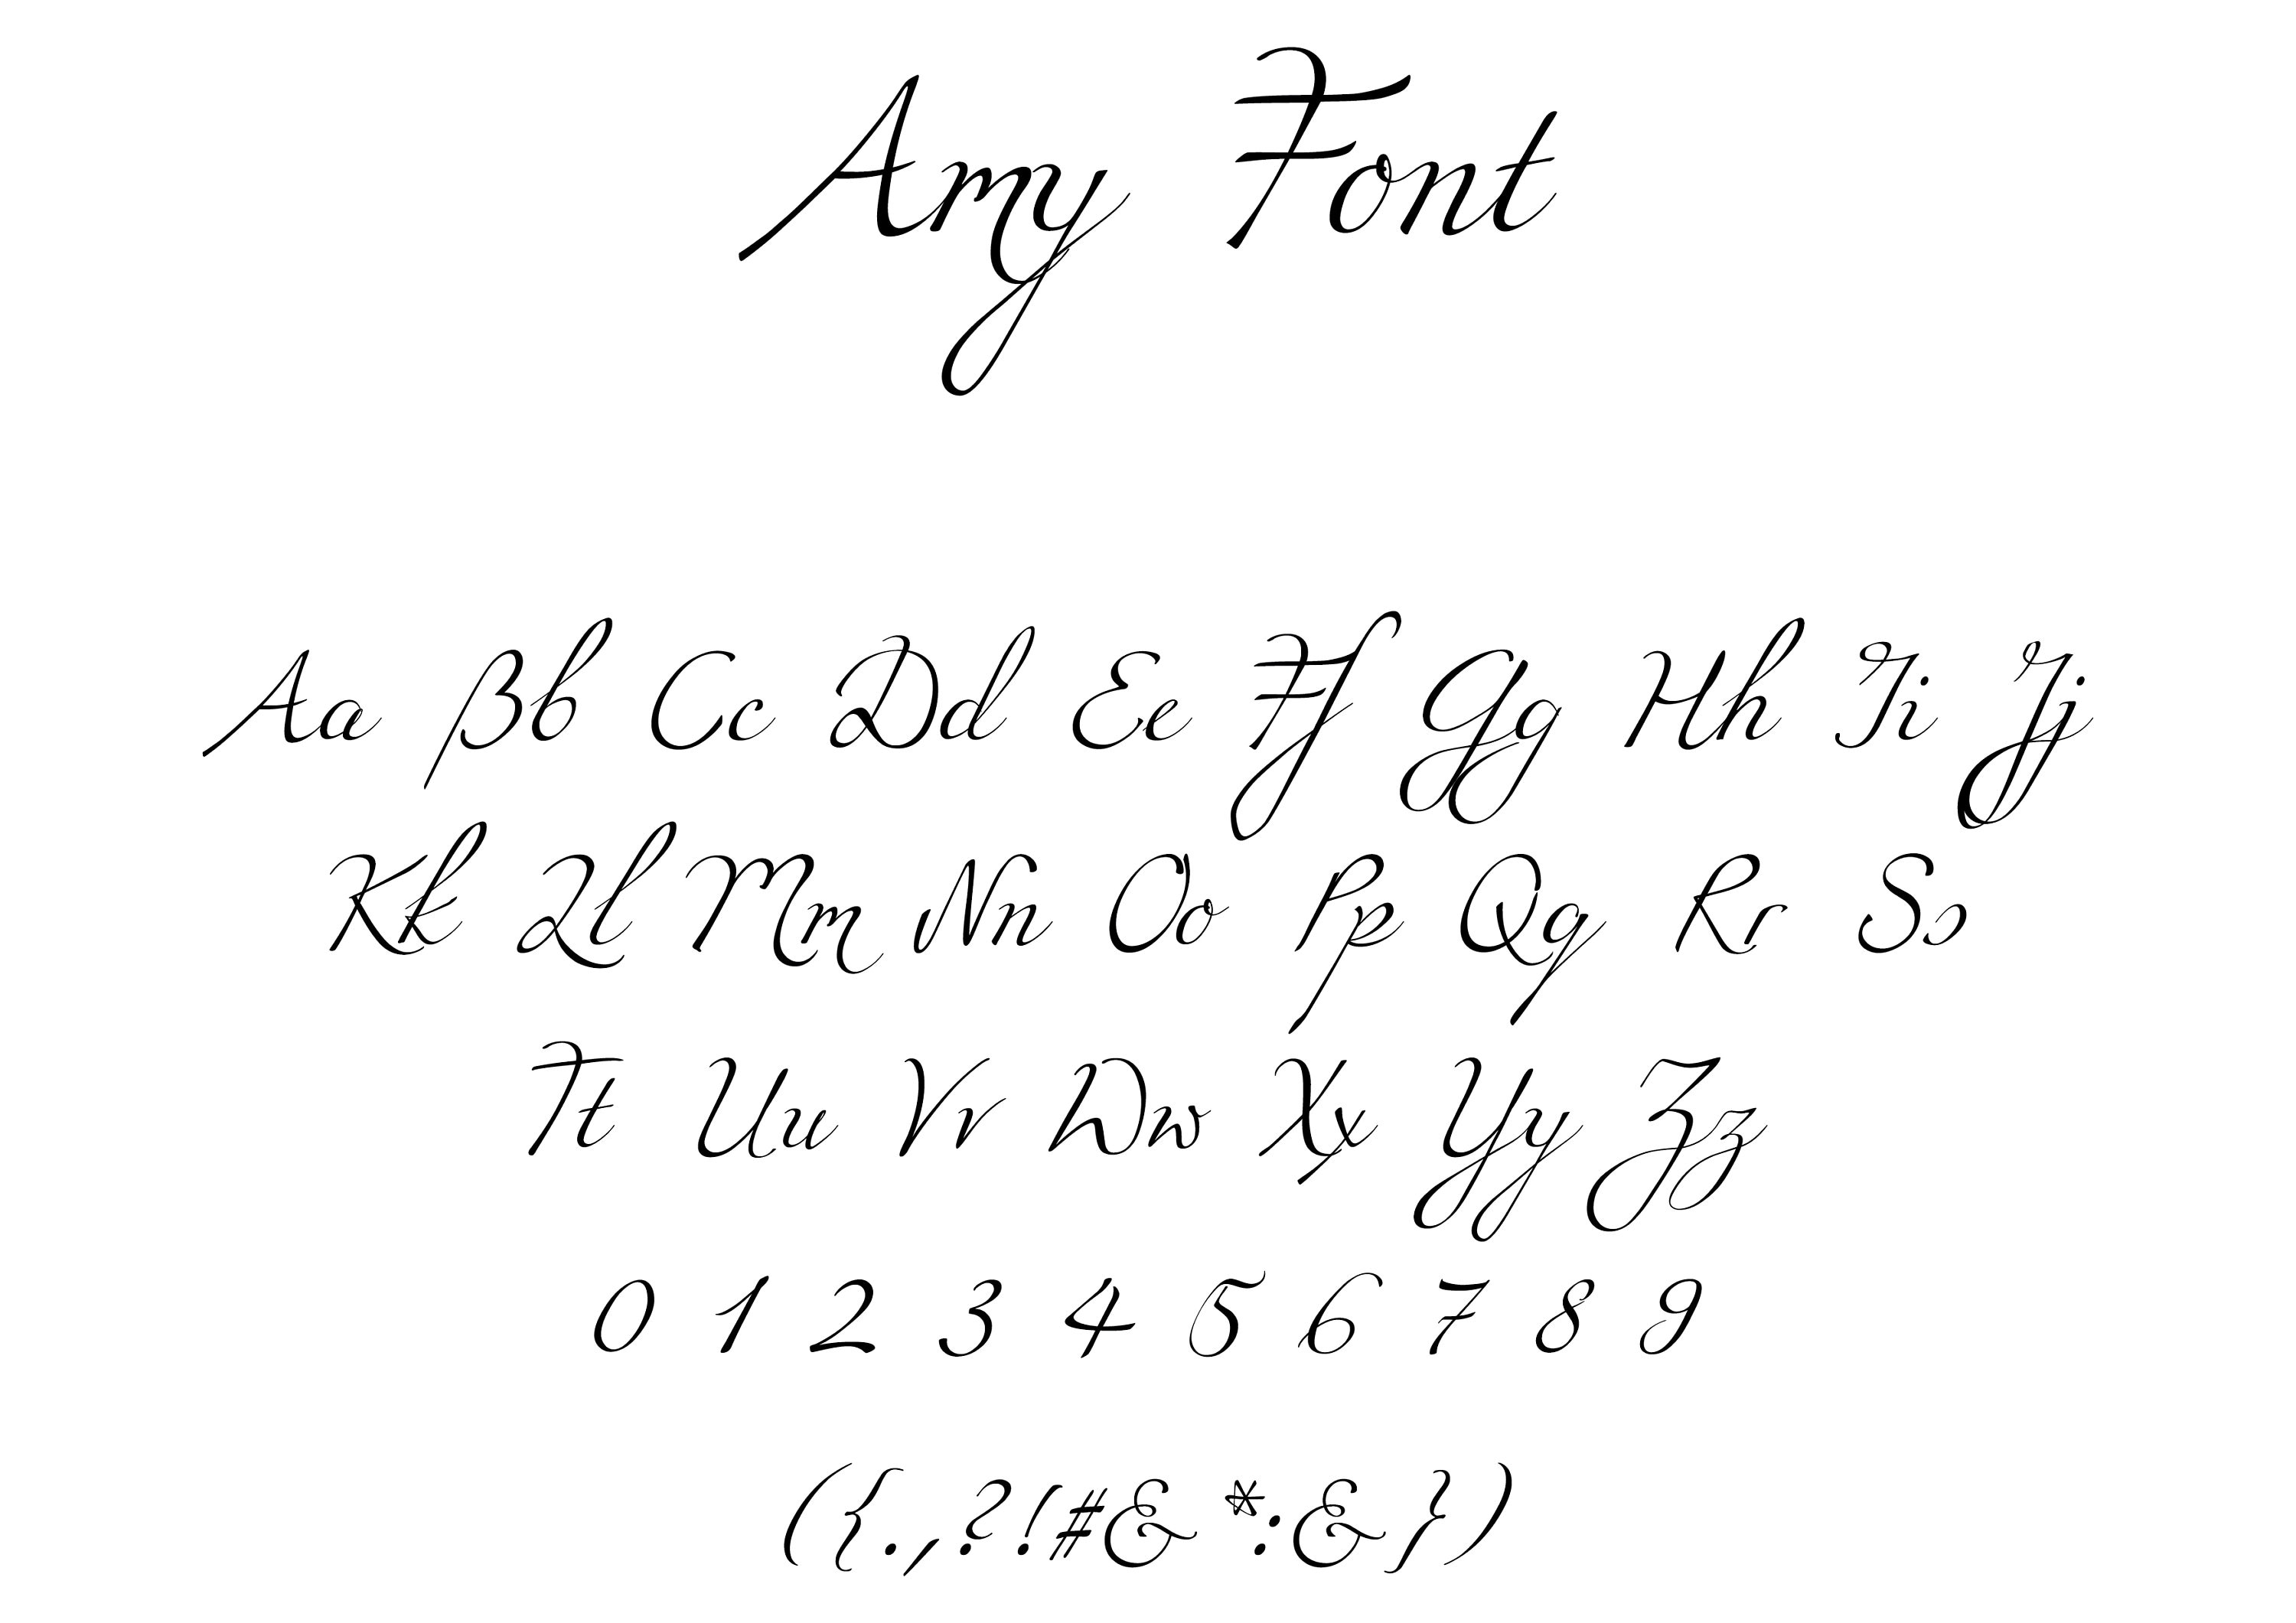 Amy Font
Aa Bb Cc Dd Ee Ff Gg Hh Ii Jj
Kk Ll Mm Nn Oo Pp Qq Rr Ss
Tt Uu Vv Ww Xx Yy Zz
0 1 2 3 4 5 6 7 8 9
({.,?!#&*:&})